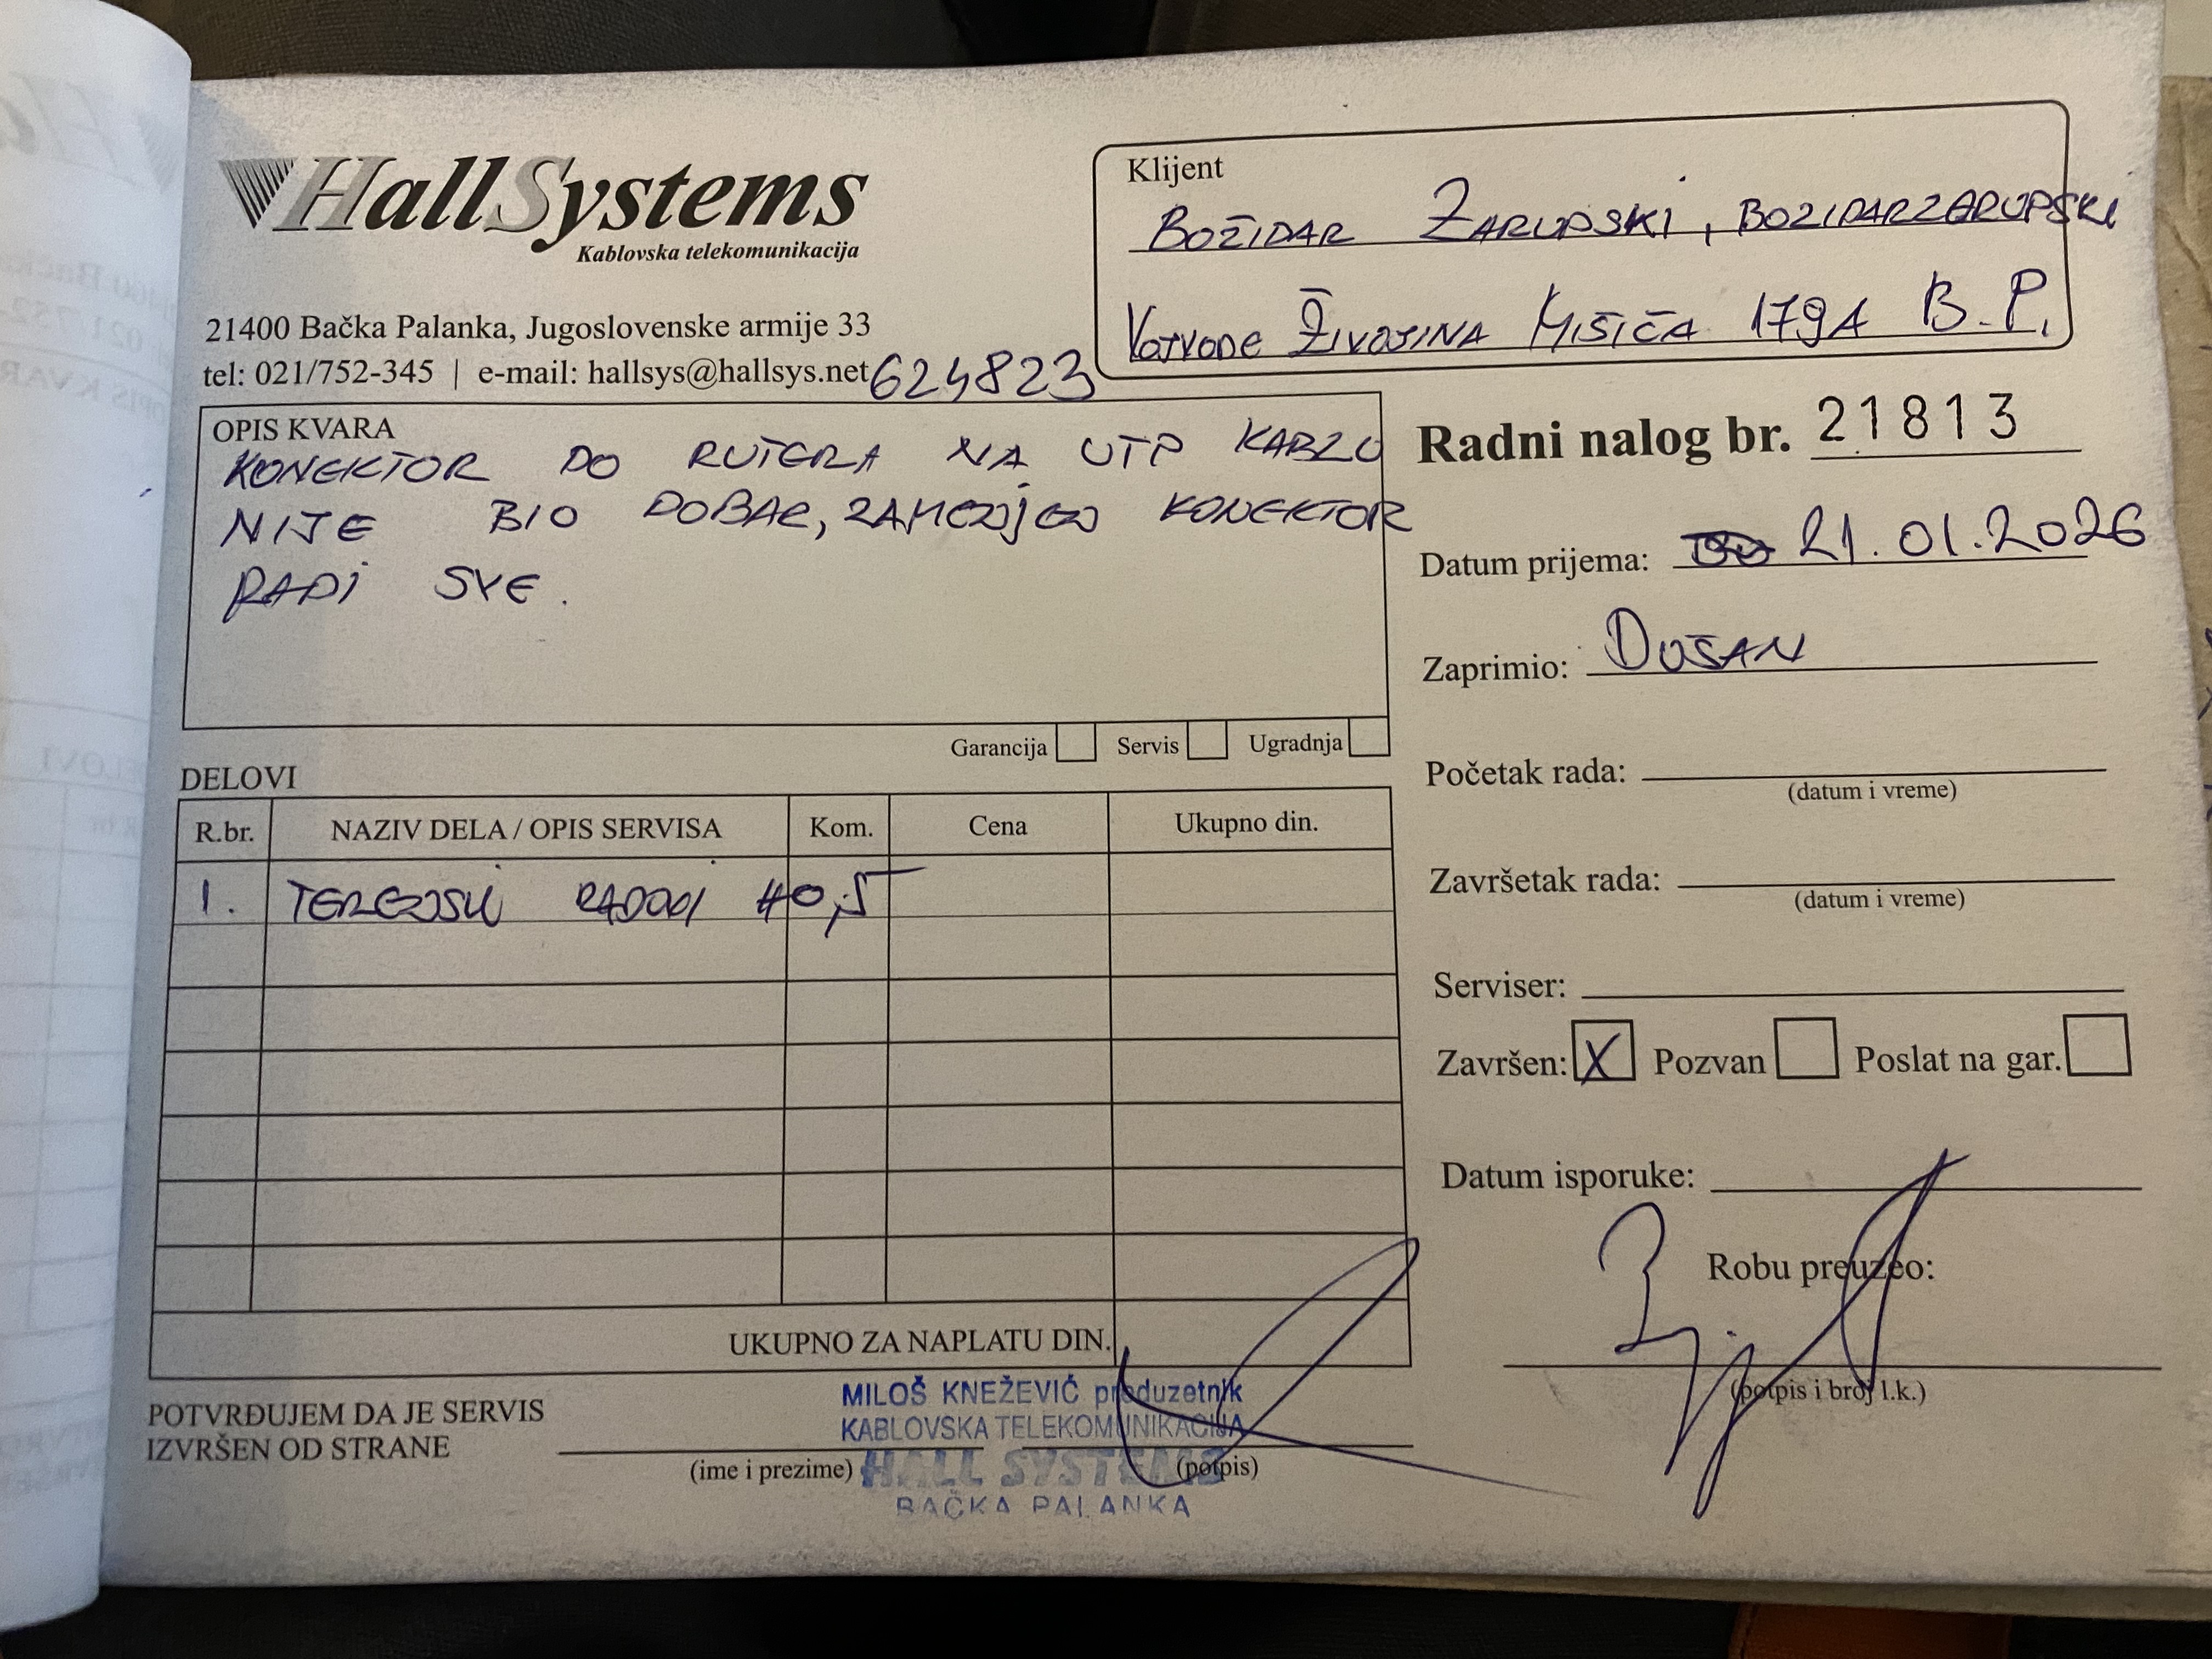 HallSystems
Kablovska telekomunikacija
21400 Bačka Palanka, Jugoslovenske armije 33
tel: 021/752-345 | e-mail: hallsys@hallsys.net 624823
Klijent
BOŽIDAR ZARUPSKI, BOZIDARZARUPSKI
VOJVODE ŽIVOJINA MIŠIĆA 179A B.P.
OPIS KVARA
KONEKTOR DO RUTERA NA UTP KABLU
NIJE BIO DOBAR, ZAMENJEN KONEKTOR
RADI SVE.
Garancija Servis Ugradnja
Radni nalog br. 21813
Datum prijema: 21.01.2026
Zaprimio: DUŠAN
Početak rada:
(datum i vreme)
Završetak rada:
(datum i vreme)
Serviser:
Završen: X Pozvan Poslat na gar.
Datum isporuke:
Robu preuzeo:
(potpis i broj l.k.)
DELOVI
R.br. NAZIV DELA / OPIS SERVISA Kom. Cena Ukupno din.
1. TERENSKI RADOVI H0,5
UKUPNO ZA NAPLATU DIN.
POTVRĐUJEM DA JE SERVIS
IZVRŠEN OD STRANE
(ime i prezime) (potpis)
MILOŠ KNEŽEVIĆ preduzetnik
KABLOVSKA TELEKOMUNIKACIJA
HALL SYSTEMS
BAČKA PALANKA